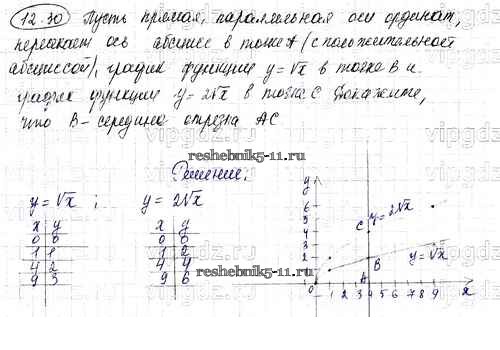 12.30 Пусть прямая, параллельная оси ординат,
пересекает ось абсцисс в точке A (с положительной
абсциссой), график функции y=√x в точке B и
график функции y=2√x в точке C. Докажите,
что B - середина отрезка AC
Решение:
reshebnik5-11.ru
y=√x ; y=2√x
x y
0 0
1 1
4 2
9 3
x y
0 0
1 2
4 4
9 6
reshebnik5-11.ru
y
6
5
4
3
2
1
0
1 2 3 4 5 6 7 8 9 x
C
y=2√x
B
y=√x
A
vipgdz.ru